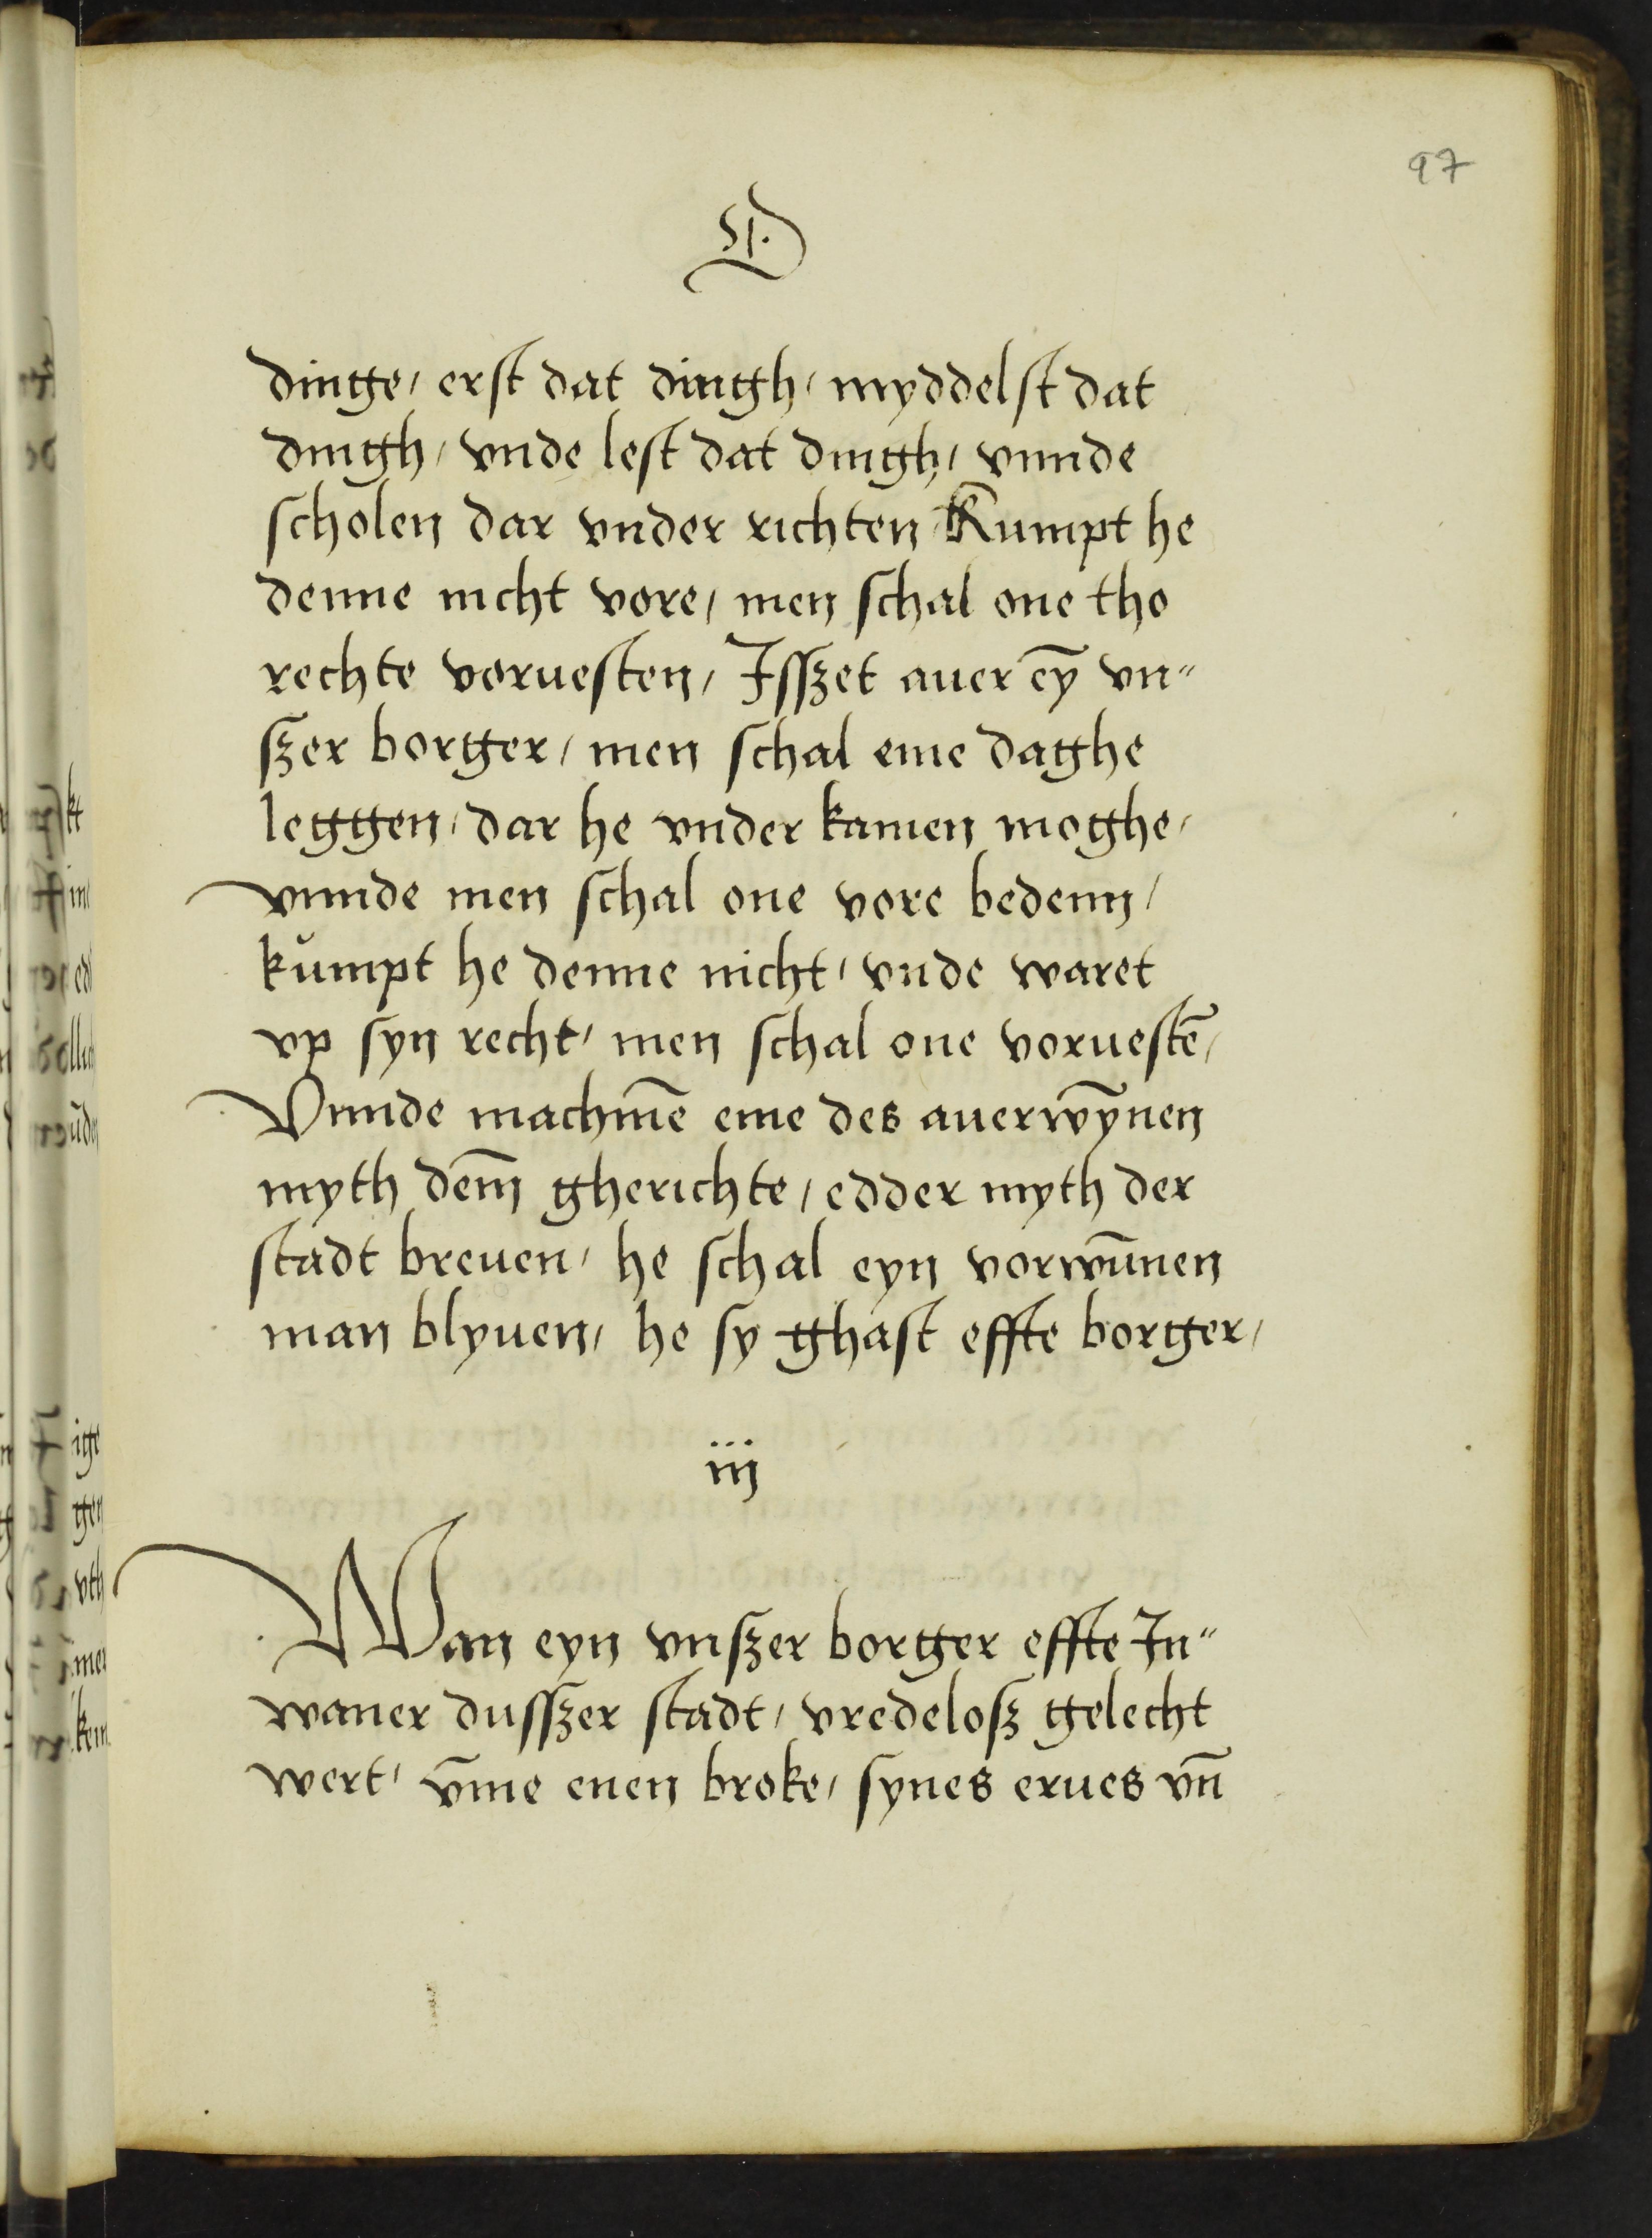 97
dinge, erst dat dingh, myddelst dat
dingh, vnde lest dat dingh, vnnde
scholen dar vnder richten, Kumpt he
denne nicht vore, men schal one tho
rechte voruesten, Jsszet auer ey̅ vn"
szer borger, men schal eme daghe
leggen, dar he vnder kamen moghe,
vnnde men schal one vore bedenn,
kŭmpt he denne nicht, vnde waret
vp syn recht, men schal one voruestē,
Vnnde machmē eme des auerwy̅nen
myth dem̅ gherichte, edder myth der
stadt breuen, he schal eyn vorwu̅nen
man blyuen, he sy ghast effte borger,
iij
Wan eyn vnszer borger effte Jn"
waner dusszer stadt, vredelosz gelecht
wert, v̅me enen broke, synes erues vn̅